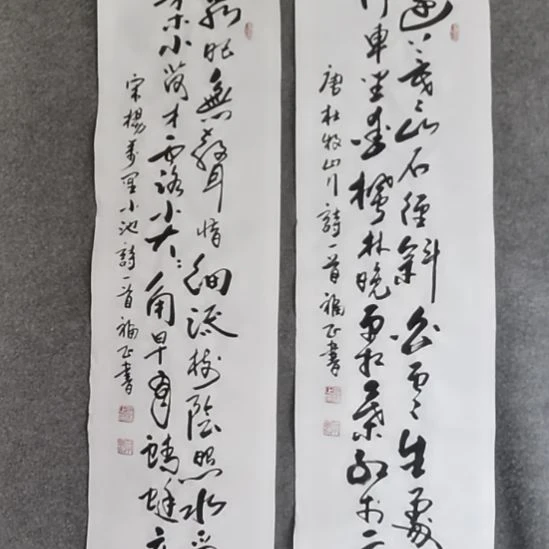 遠上寒山石徑斜白雲生處
車坐愛楓林晚霜葉紅於二
唐杜牧山行詩一首福正書
泉眼無聲惜細流樹陰照水愛
柔小荷才露尖尖角早有蜻蜓立
宋楊萬里小池詩一首福正書